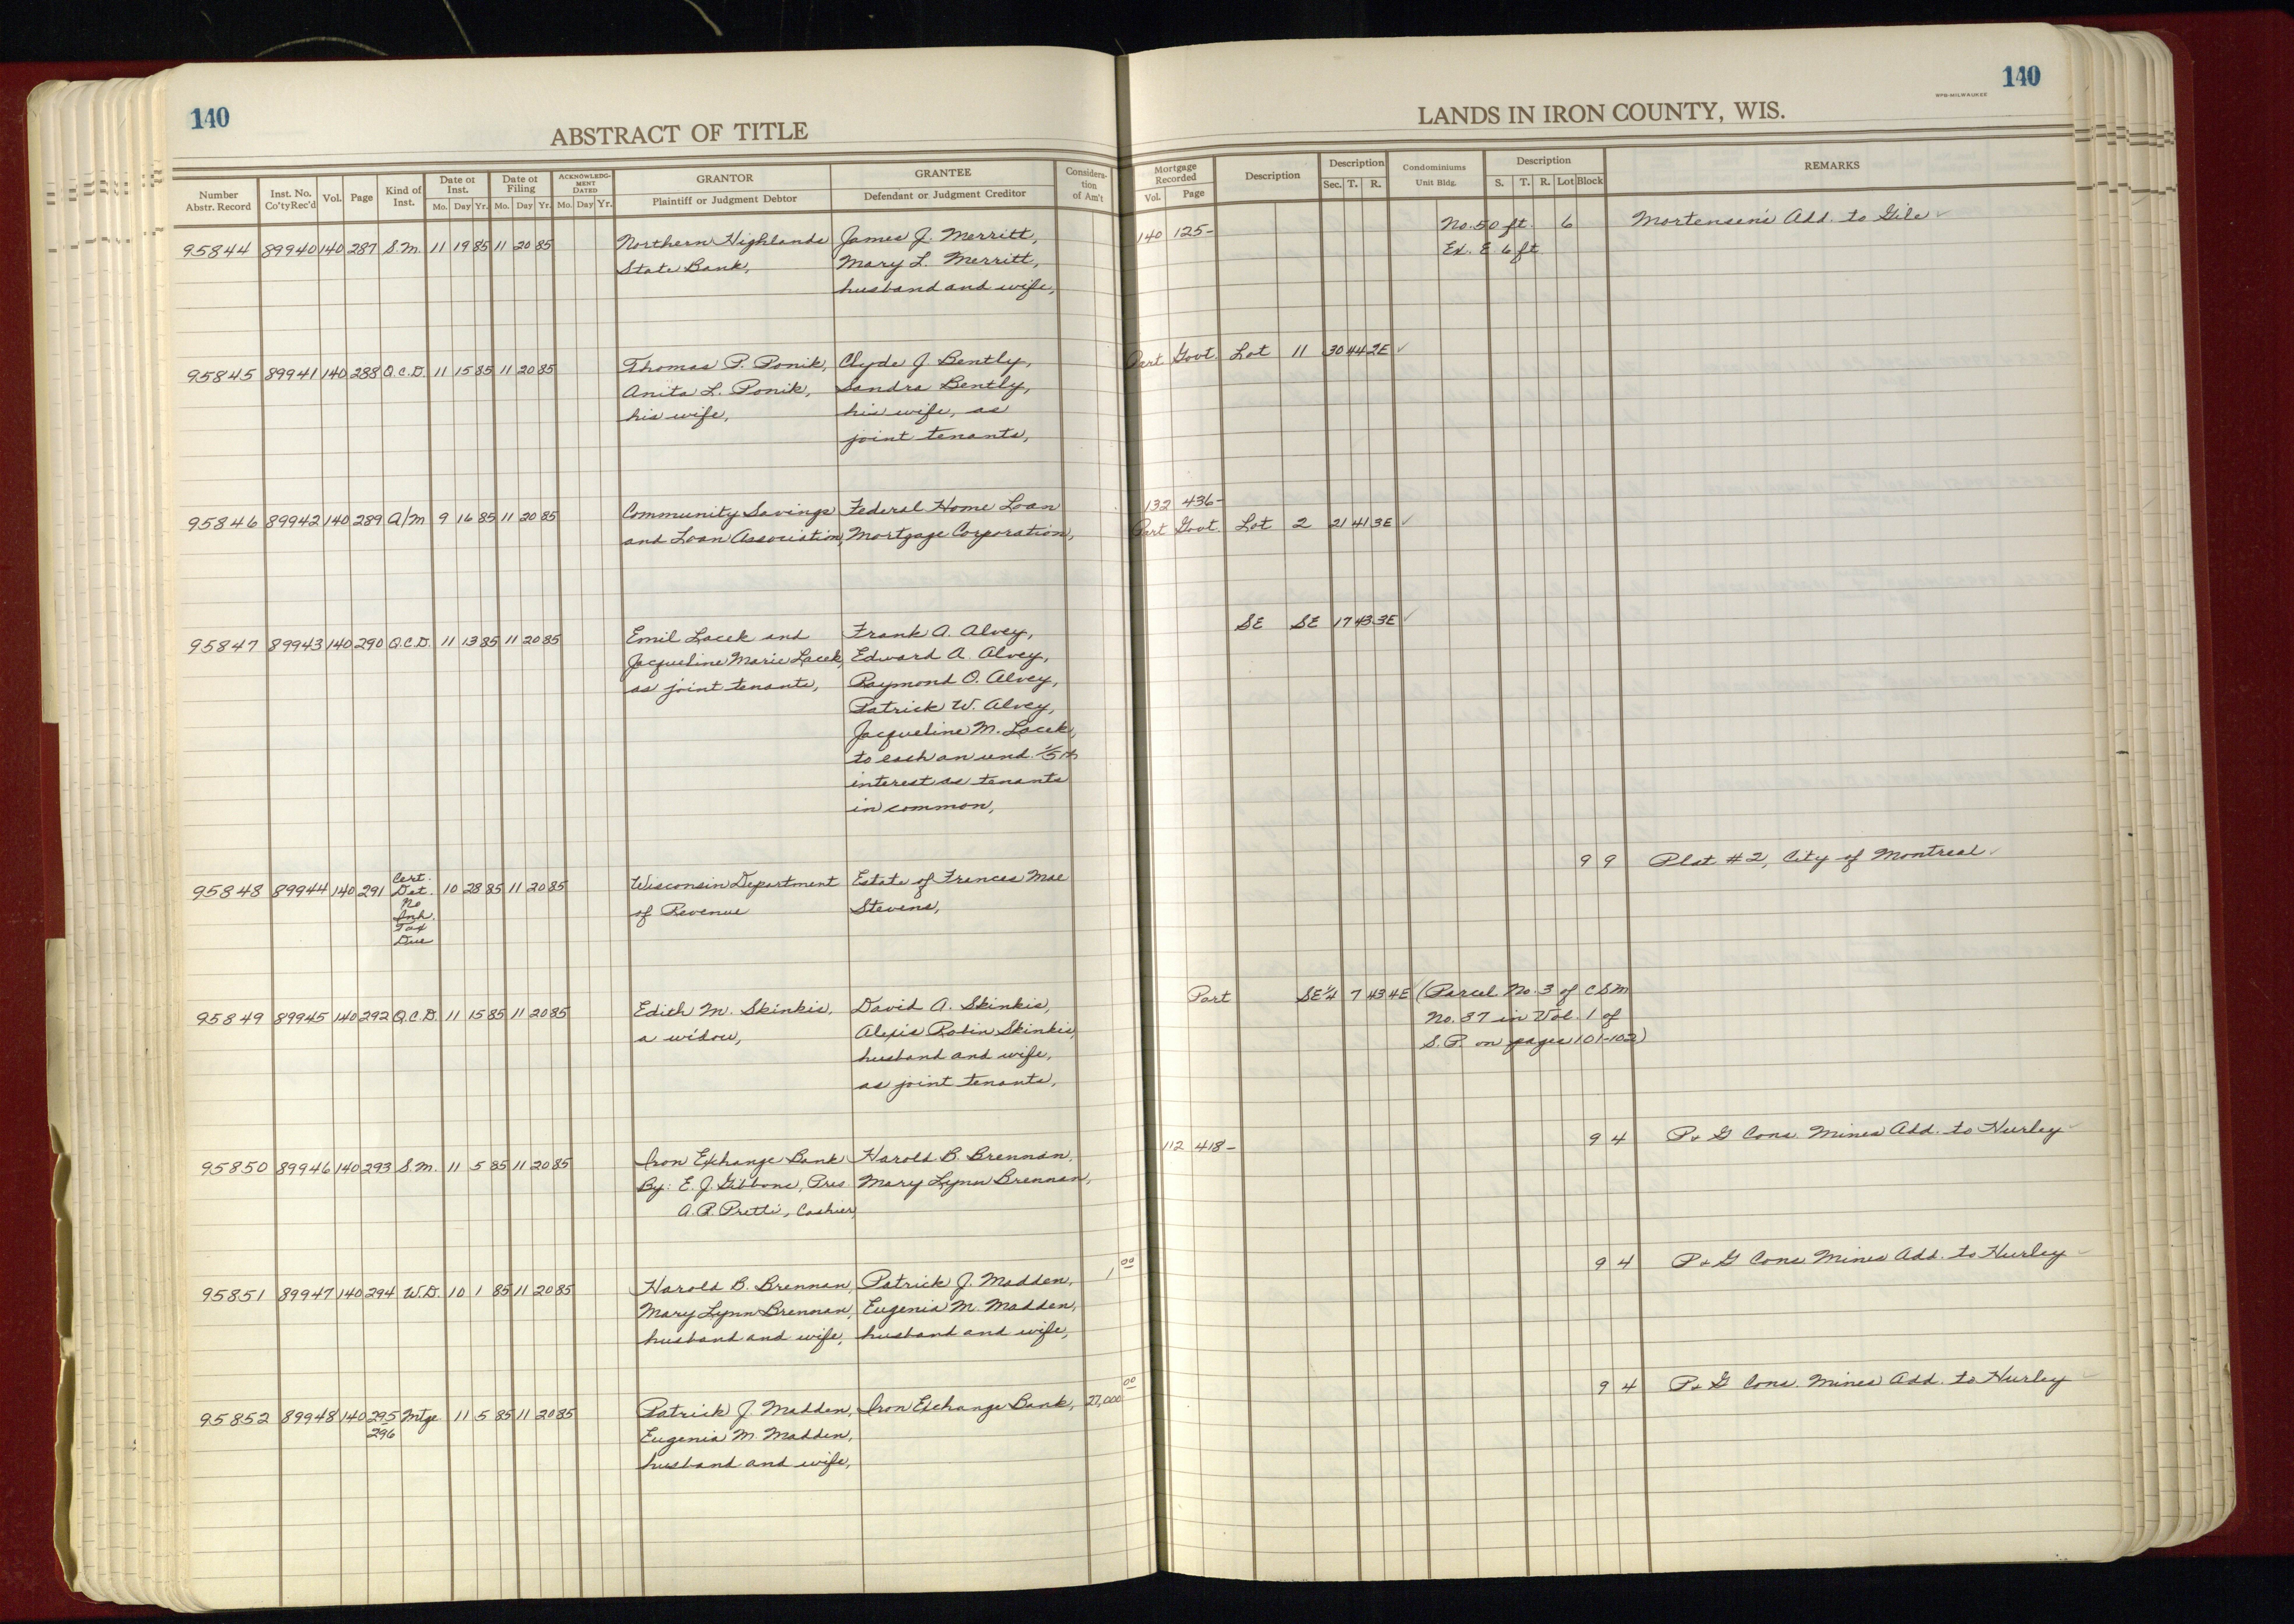 140
140
WPB-MILWAUKEE
ABSTRACT OF TITLE
LANDS IN IRON COUNTY, WIS.
Number Abstr. Record
Inst. No. Co'ty Rec'd
Vol.
Page
Kind of Inst.
Date of Inst.
Mo. Day Yr.
Date of Filing
Mo. Day Yr.
ACKNOWLEDG-MENT DATED
Mo. Day Yr.
GRANTOR
Plaintiff or Judgment Debtor
GRANTEE
Defendant or Judgment Creditor
Considera-tion of Am't
Mortgage Recorded
Vol. Page
Description
Description
Sec. T. R.
Condominiums
Unit Bldg.
Description
S. T. R. Lot Block
REMARKS
95844 89940 140 287 S.M. 11 19 85 11 20 85 Northern Highlands James J. Merritt, 140 125- No. 50 ft. 6 Mortensen's Add. to Gile ✓
State Bank, Mary L. Merritt, Ex. E 6 ft.
husband and wife,
95845 89941 140 288 Q.C.D. 11 15 85 11 20 85 Thomas P. Ponik, Clyde J. Bently, Part Govt. Lot 11 30 44 2E ✓
Anita L. Ponik, Sandra Bently,
his wife, his wife, as
joint tenants,
132 436-
95846 89942 140 289 A/M 9 16 85 11 20 85 Community Savings Federal Home Loan Part Govt. Lot 2 21 41 3E ✓
and Loan Association, Mortgage Corporation,
95847 89943 140 290 Q.C.D. 11 13 85 11 20 85 Emil Lacek and Frank A. Alvey, SE SE 17 43 3E ✓
Jacqueline Marie Lacek, Edward A. Alvey,
as joint tenants, Raymond O. Alvey,
Patrick W. Alvey,
Jacqueline M. Lacek,
to each an und. 1/5th
interest as tenants
in common,
95848 89944 140 291 Cert. 10 28 85 11 20 85 Wisconsin Department Estate of Frances Mae 9 9 Plat #2, City of Montreal ✓
Det. of Revenue Stevens,
No
Inh.
Tax
Due
95849 89945 140 292 Q.C.D. 11 15 85 11 20 85 Edith M. Skinkis, David A. Skinkis, Part SE¼ 7 43 4E (Parcel No. 3 of CSM
a widow, Alexis Robin Skinkis, No. 87 in Vol. 1 of
husband and wife, S.P. on pages 101-102)
as joint tenants,
95850 89946 140 293 S.M. 11 5 85 11 20 85 Iron Exchange Bank Harold B. Brennan, 112 418- 9 4 P & G Cons. Mines Add. to Hurley ✓
By: E. J. Gibbons, Pres. Mary Lynn Brennan,
A. P. Pretti, Cashier,
95851 89947 140 294 W.D. 10 1 85 11 20 85 Harold B. Brennan, Patrick J. Madden, 1 00 9 4 P & G Cons Mines Add. to Hurley ✓
Mary Lynn Brennan, Eugenia M. Madden,
husband and wife, husband and wife,
95852 89948 140 295 Mtge 11 5 85 11 20 85 Patrick J. Madden, Iron Exchange Bank, 27,000 00 9 4 P & G Cons. Mines Add. to Hurley
296 Eugenia M. Madden,
husband and wife,